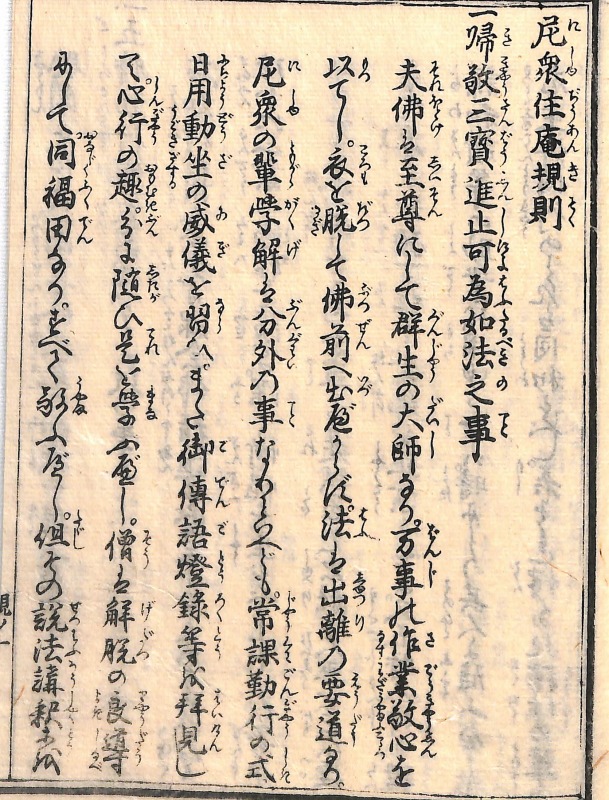 尼衆住庵規則
一歸敬三寶進止可為如法之事
夫佛は至尊にして群生の大師なり。万事の作業敬心を
以てし。衣を脱して佛前へ出べからず。法は出離の要道なり。
尼衆の輩学解は分外の事なりといへども。常課勤行の式
日用動坐の威儀を習ひ。また御傳語燈録等を拝見し
て心行の趣分に随ひ是を学ふべし。僧は解脱の良導
にして同福田なり。すべて敬ふべし。但その説法講釈を
規ノ一